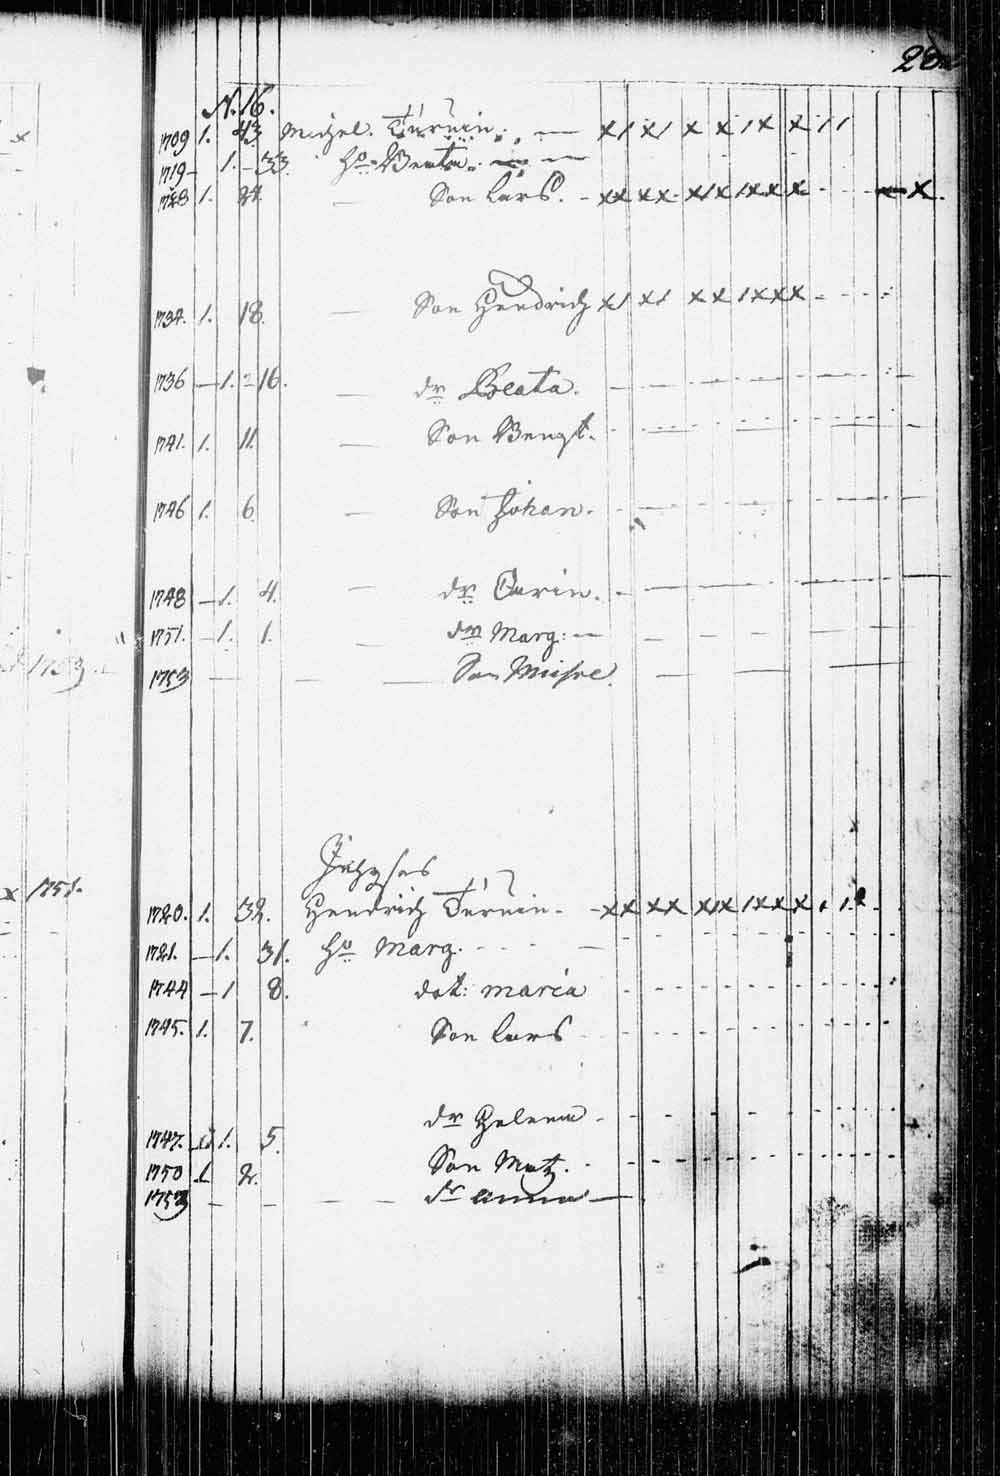 28
N. 16.
1709 1. 43. Michel. Turpein. — x/ x/ x x /x x / /
1719 - 1. - 33. Ho Beata. — —
1728 1. 24. — Son Lars. - xx xx x/x /xxx - - - — x.
1734. 1. 18. — Son Hendrich x/ x/ xx /xxx - - - -
1736 — 1. - 16. — dr Beata.
1741. 1. 11. — Son Bengt.
1746 1. 6. — Son Johan.
1748 — 1. 4. — dr Carin.
1751. — 1. 1. — dr Marg: —
1753 — — — Son Michel
x 1751.
Inhyses
1720. 1. 32. Hendrich - xx xx x/x /xxx
1721. — 1. 31. Ho Marg.
1744 — 1 8. dot: Maria
1745. 1. 7. Son Lars
1747. 1. 5. dr Helena
1750 1 2. Son Matz.
1753 — — — dr Anna —